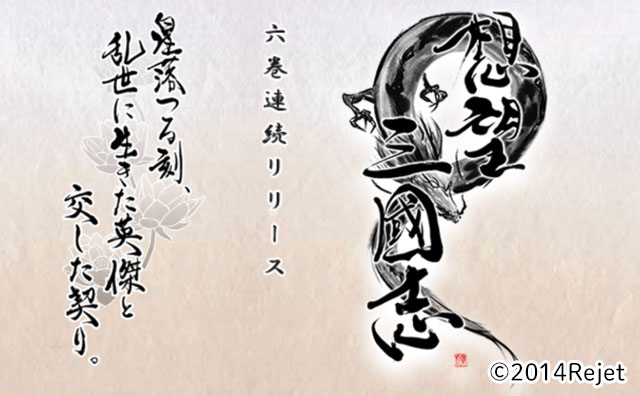 想望
三國志
六巻連続リリース
星落つる刻、
乱世に生きた英傑と
交した契り。
©2014Rejet